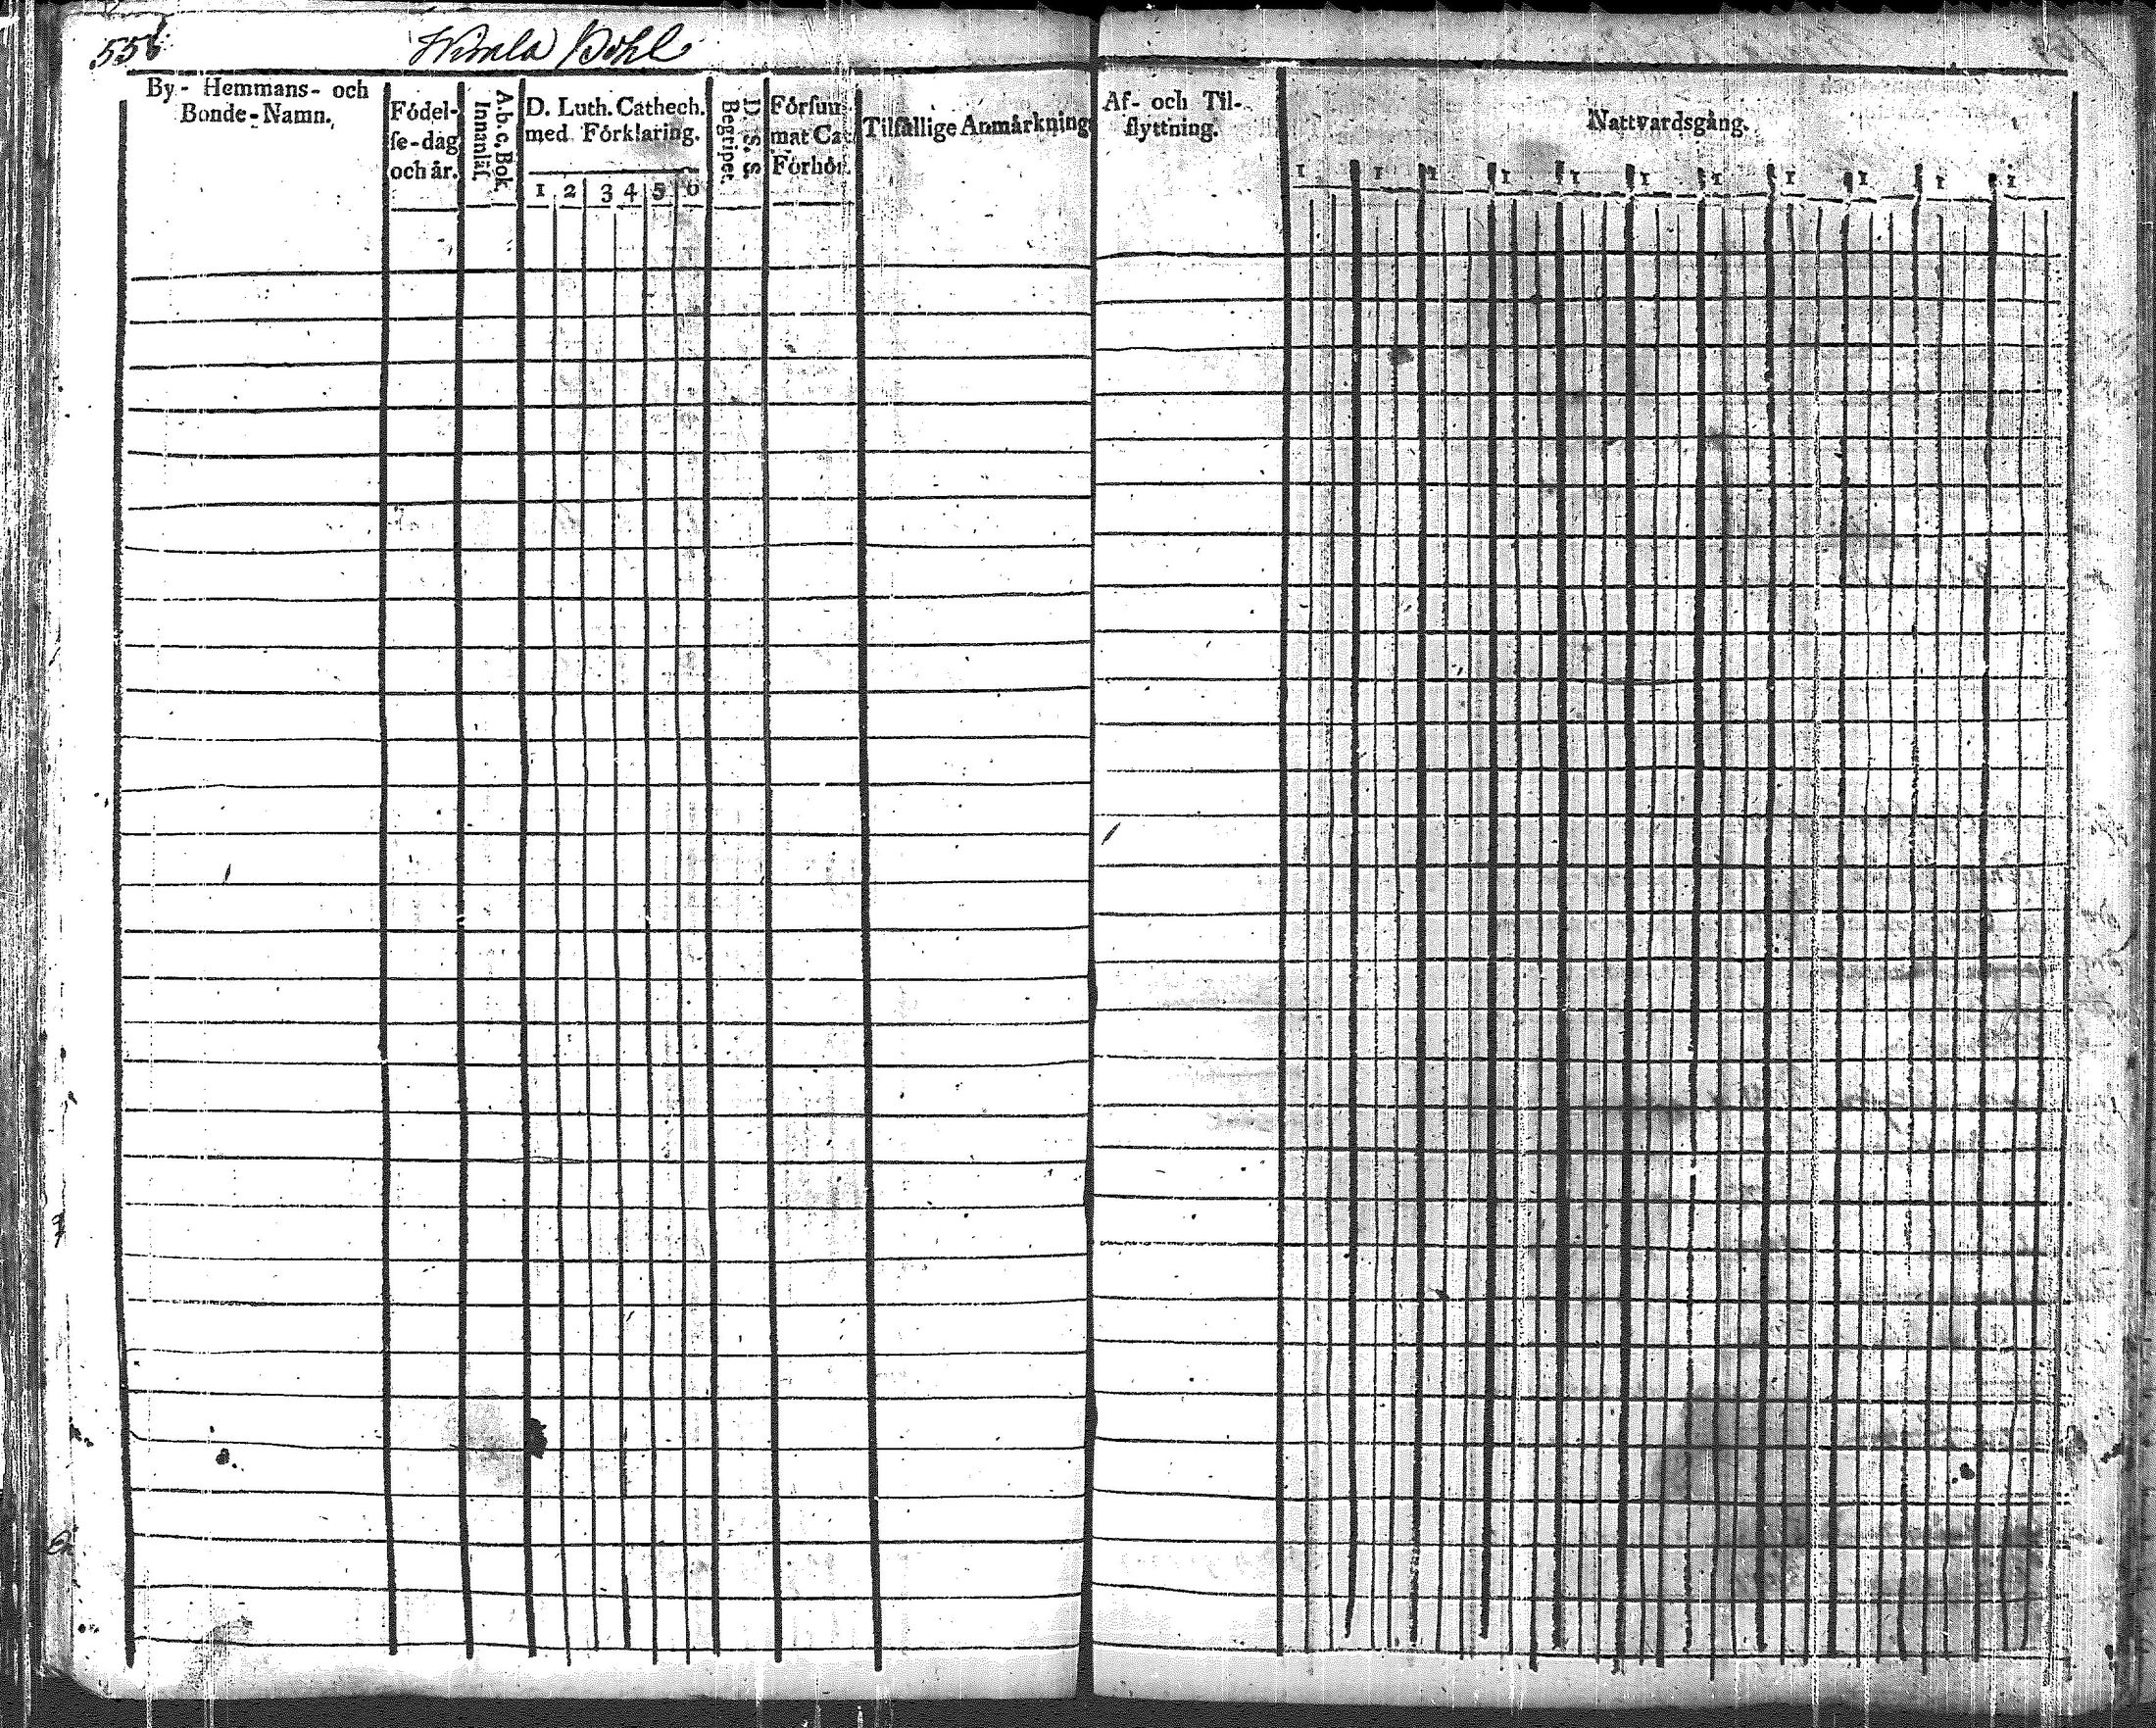 556
Wirala Bohl
By- Hemmans- och
Bonde-Namn.
Födel-
se-dag
och år.
Ab. c. Bok
Innanläs.
D. Luth. Cathech.
med Förklaring.
1 2 3 4 5 6
D. S. S.
Begripet.
Försum
mat Cat
Förhör.
Tilfällige Anmärkning
Af- och Til-
flyttning.
Nattvardsgång.
1 1 1 1 1 1 1 1 1 1 1